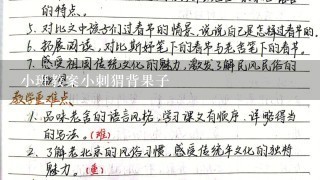 的特点。
5. 对比文中孩子们过春节的情景,说说自己是怎样过春节的.
6. 拓展阅读,对比斯好笔下的春节与老舍笔下的春节。
7. 感受祖国传统文化的魅力,激发了解民风民俗的
小班教案小刺猬背果子
教学重难点
1. 品味老舍的语言风格,学习课文有顺序、详略得当
的写法。(难)
2. 了解老北京的风俗习惯,感受传统年文化的独特
魅力。(重)